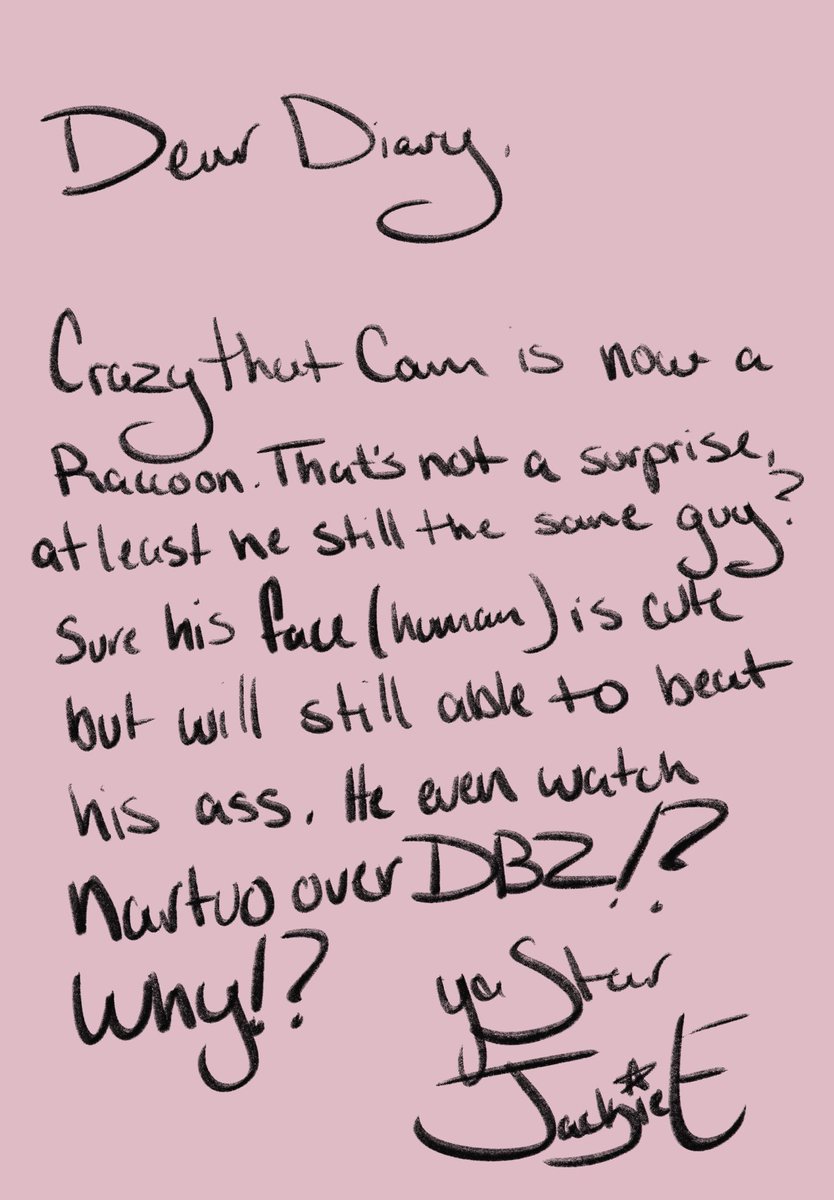 Dear Diary.
Crazy that Cam is now a
Raccoon. That's not a surprise,
at least he still the same guy?
Sure his face (human) is cute
but will still able to beat
his ass. He even watch
Nartuo over DBZ!?
Why!?
ya Star
Jackie E